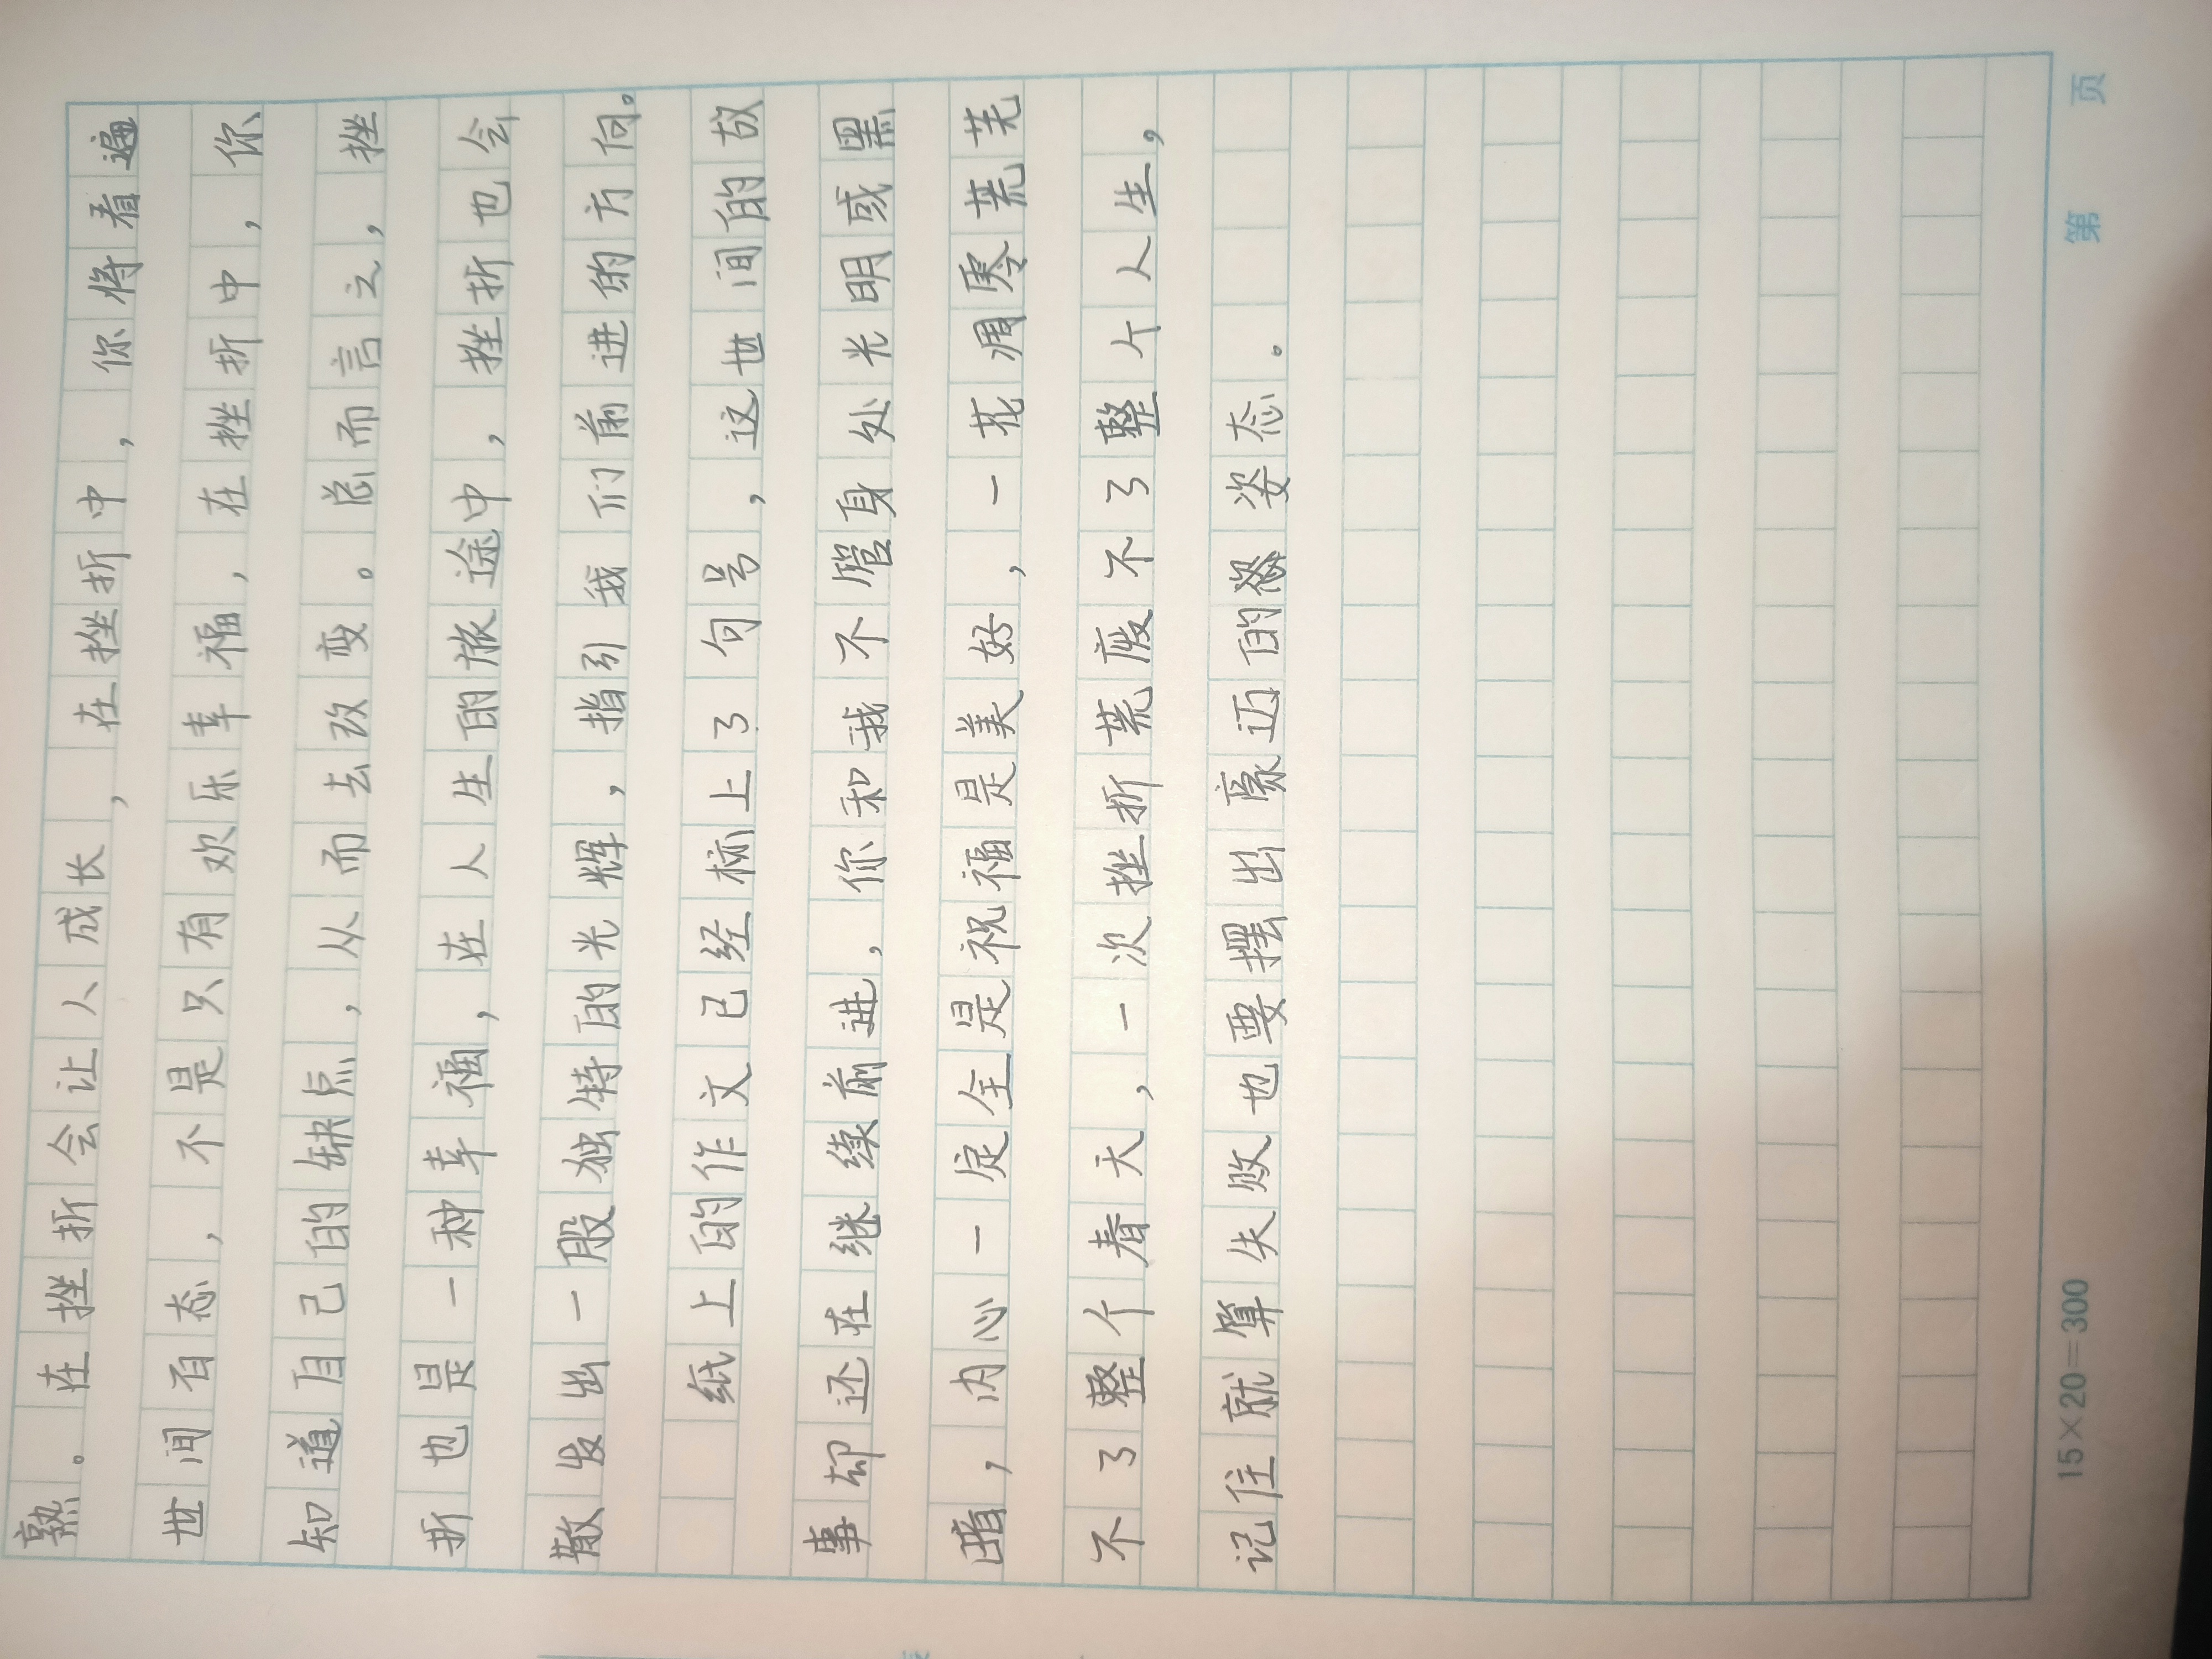 熟。在挫折会让人成长，在挫折中，你将看遍
世间百态，不是只有欢乐幸福，在挫折中，你
知道自己的缺点，从而去改变。总而言之，挫
折也是一种幸福，在人生的旅途中，挫折也会
散发出一股独特的光辉，指引我们前进的方向。
纸上的作文已经标上了句号，这世间的故
事却还在继续前进，你和我不管身处光明或黑
暗，内心一定全是祝福是美好，一花凋零荒芜
不了整个春天，一次挫折荒废不了整个人生，
记住就算失败也要摆出豪迈的姿态。
15×20=300 第 页